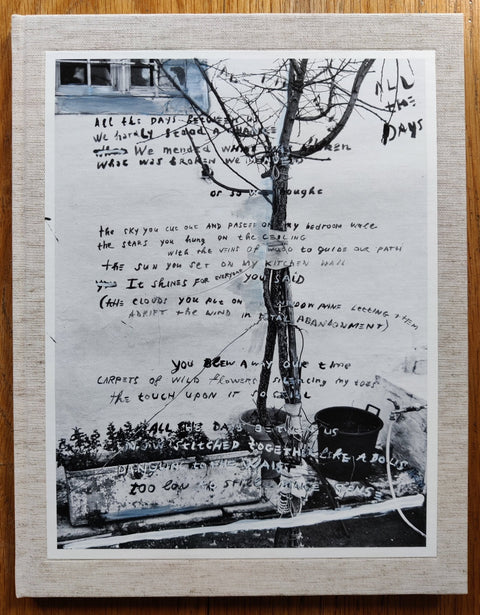 ALL
the
DAYS
All the DAYS BETWEEN US
We hardly stood A CHANCE
We mended WHAT WAS BROKEN
WHAT WAS BROKEN We MENDED
or so we thought
the sky you cut out AND PASTED ON my bedroom wall
the STARS you hung ON the CEILING
with the VEINS of WOOD to guide our PATH
the sun you set on my KITCHEN WALL
It SHINES FOR everyone you SAID
(the CLOUDS you put on WINDOW PANE LETTING THEM
ADRIFT the WIND in TOTAL ABANDONMENT)
you BLEW AWAY our time
CARPETS OF WILD flowers silencing my toes
the touch upon it so
ALL the DAYS BETWEEN US
STITCHED TOGETHER LIKE A
to the WAIST
too low to still MAKE SENSE